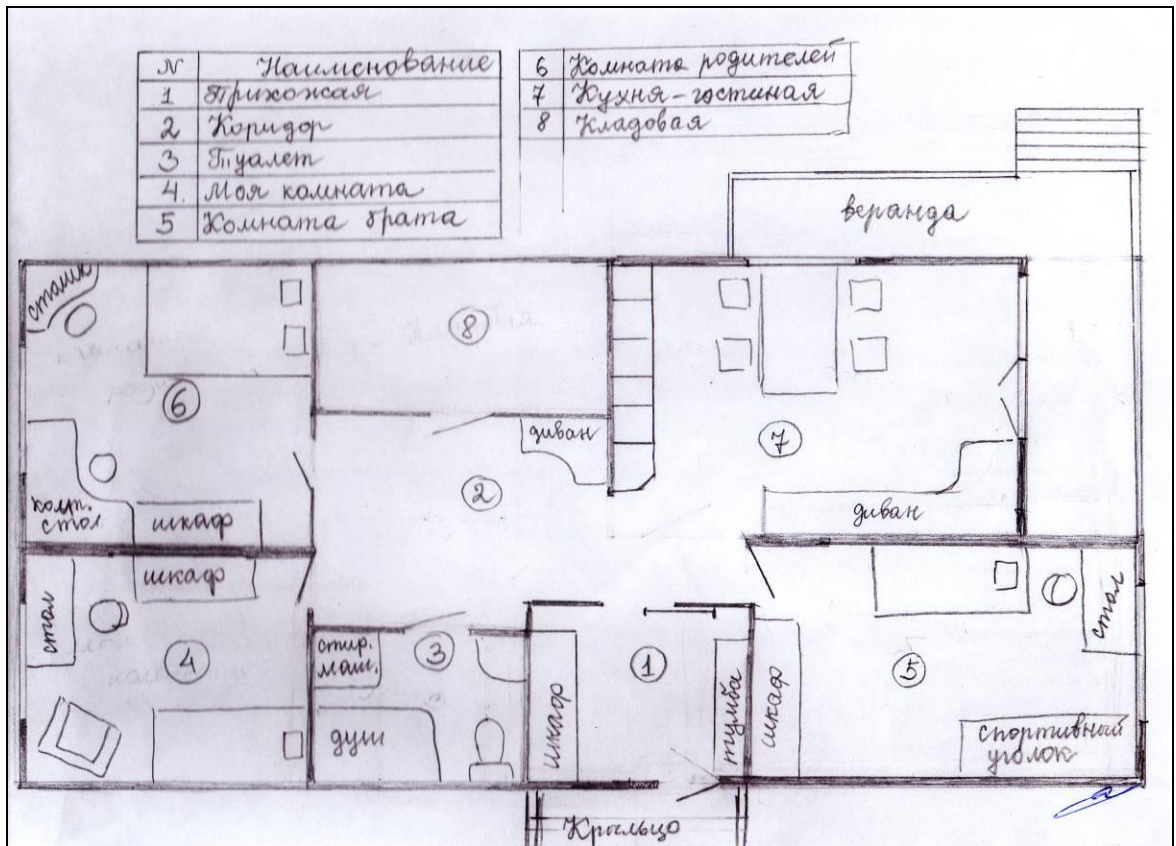 № Наименование
1 Прихожая
2 Коридор
3 Туалет
4. Моя комната
5 Комната брата
6 Комната родителей
7 Кухня-гостиная
8 Кладовая
веранда
столик
8
6
диван
7
2
комп.
стол
шкаф
диван
шкаф
стол
стол
4
стир.
маш.
3
1
5
шкаф
тумба
шкаф
душ
спортивный
уголок
Крыльцо